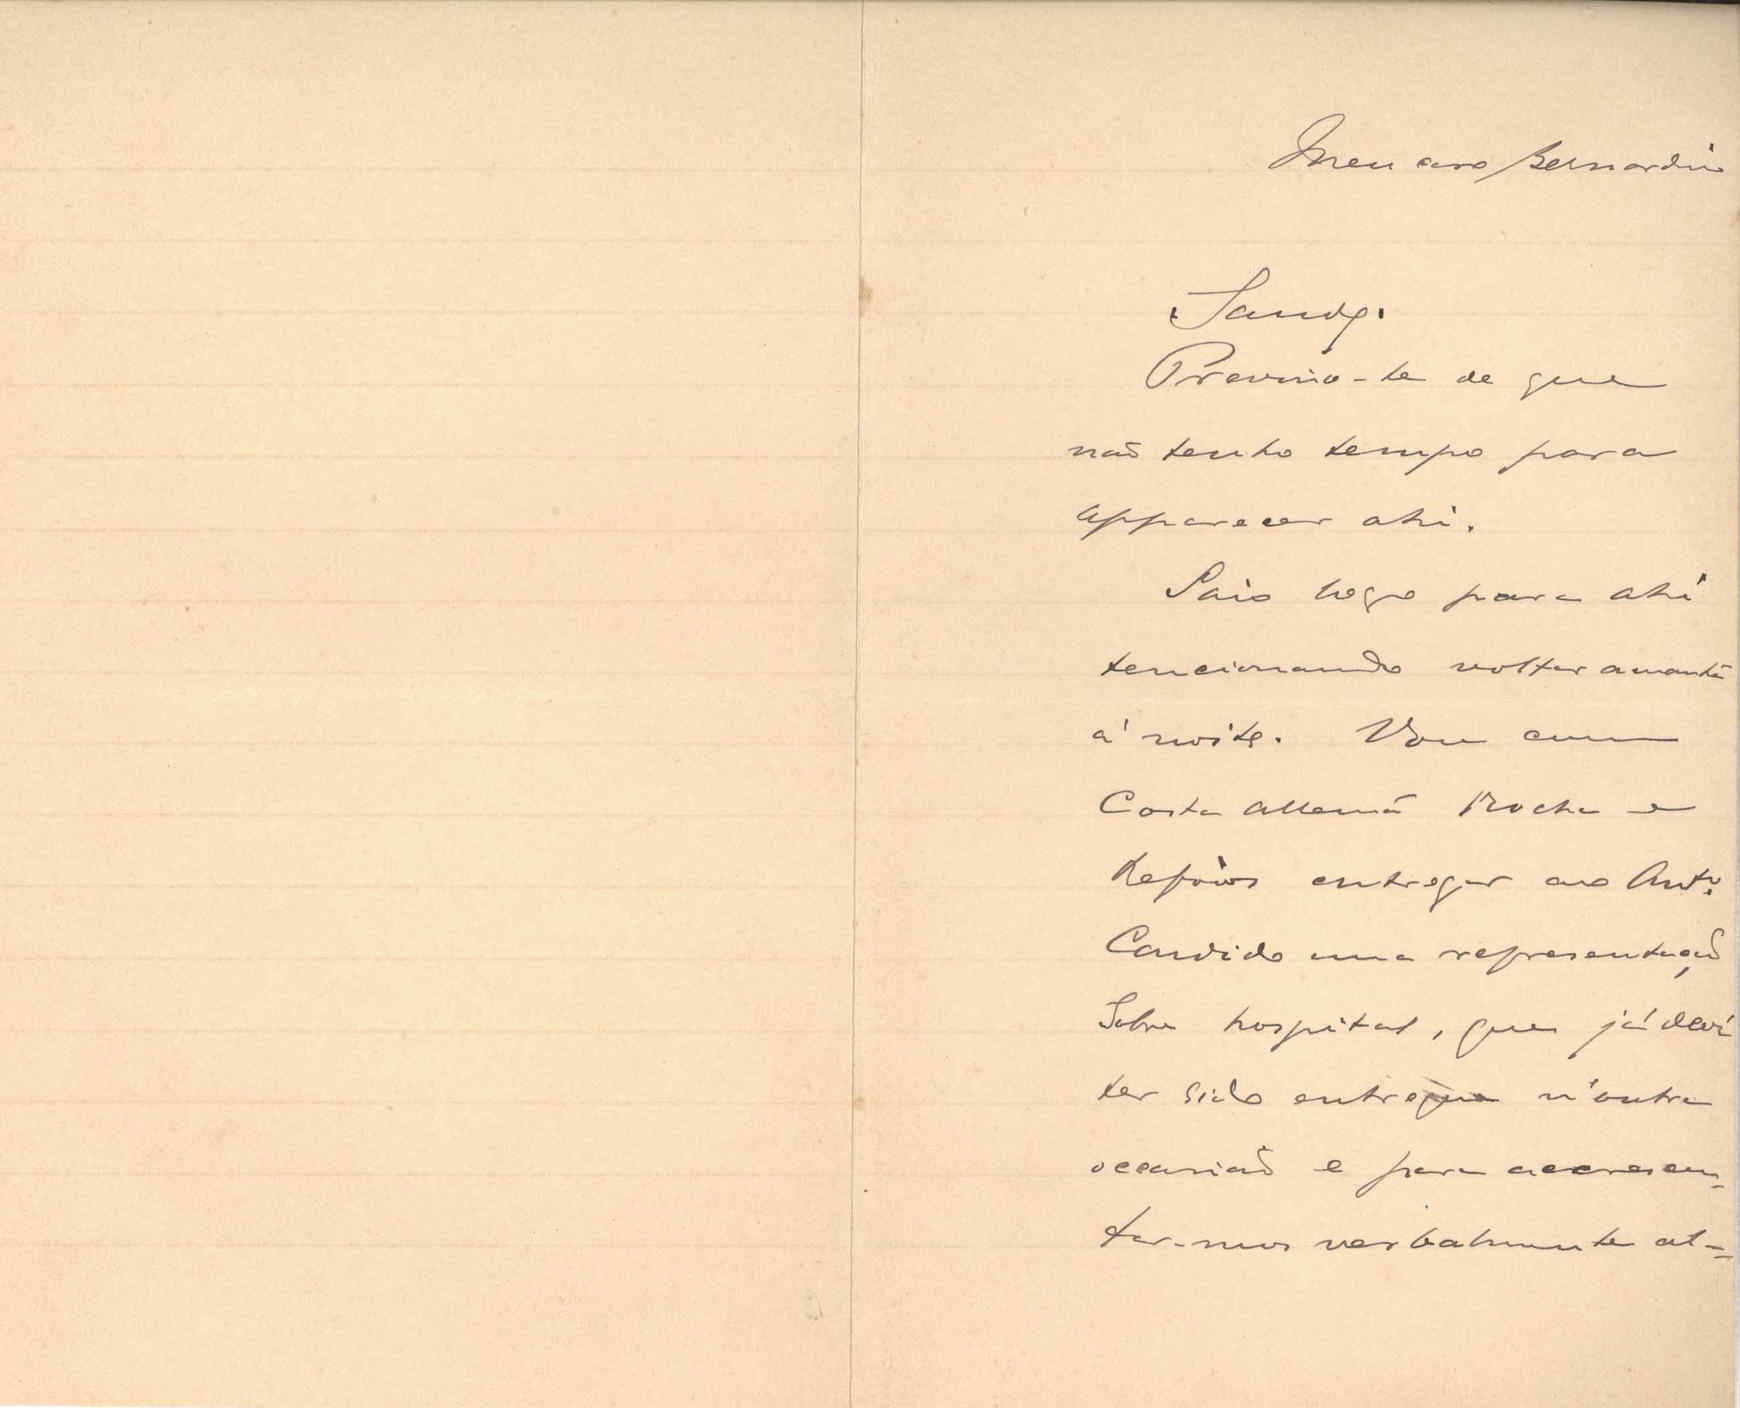 Meu caro Bernardino
Saude.
Previno-te de que
não tenho tempo para
apparecer ahi.
Saio logo para ahi
tencionando voltar amanhã
á noite. Vou com
Costa Allemã Rocha e
Refoios entregar ao Antº.
Candido uma representação
sobre hospital, que já devi
ter sido entregue n'outra
occasião e para accrescen-
tar-mos verbalmente al-